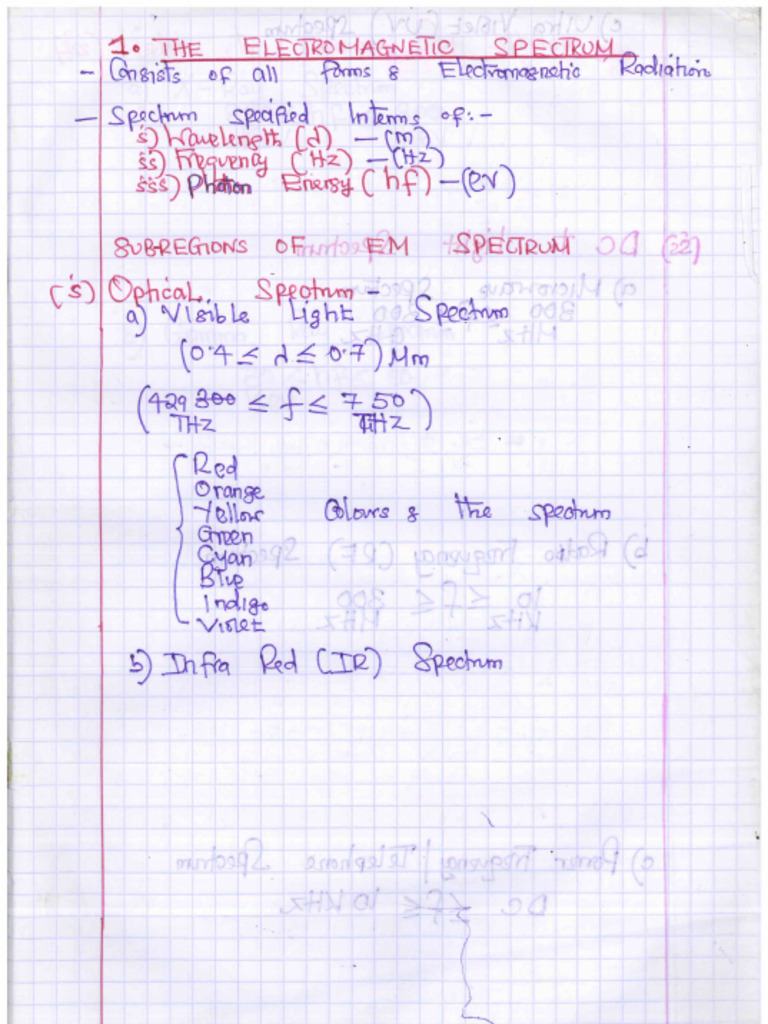 1. THE ELECTROMAGNETIC SPECTRUM
- Consists of all forms & Electromagnetic Radiation
- Spectrum specified Interms of:-
i) Wavelength (λ) - (m)
ii) Frequency (Hz) - (Hz)
iii) Photon Energy (hf) - (eV)
SUBREGIONS OF EM SPECTRUM
(i) Optical Spectrum -
a) Visible Light Spectrum
(0.4 ≤ λ ≤ 0.7) Mm
(429 300 ≤ f ≤ 750)
THZ THZ
Red
Orange
Yellow Colours & the spectrum
Green
Cyan
Blue
Indigo
Violet
b) Infra Red (IR) Spectrum